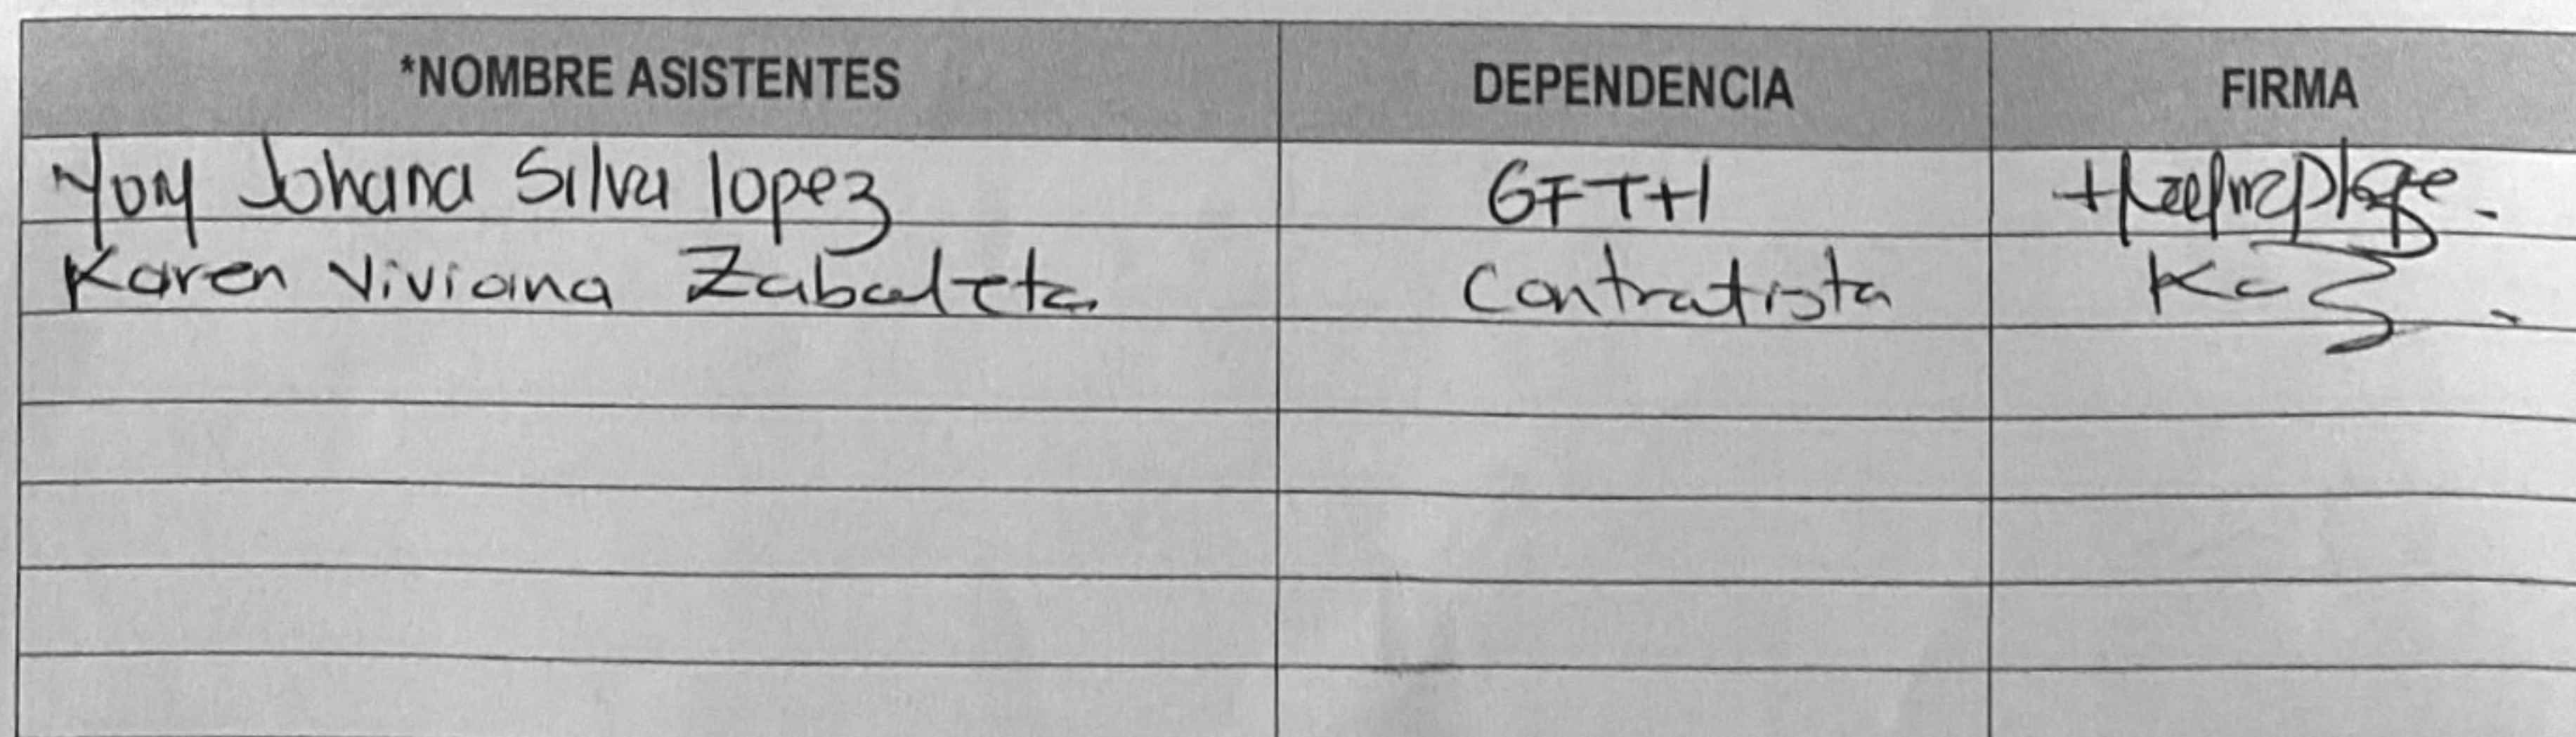 *NOMBRE ASISTENTES DEPENDENCIA FIRMA
Johana Silva lopez GFTH
Karen Viviana Zabaleta Contratista